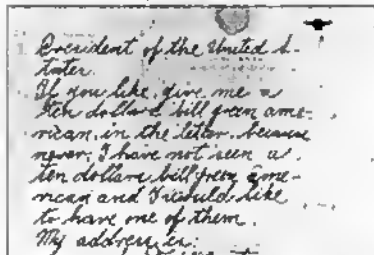 President of the United S-
tates.
If you like, give me a
ten dollars bill green ame-
rican, in the letter, because
never, I have not seen a
ten dollars bill green ame-
rican and I would like
to have one of them.
My address is: